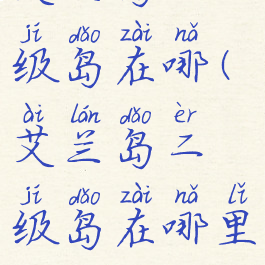 jí dǎo zài nǎ
级岛在哪(
ài lán dǎo èr
艾兰岛二
jí dǎo zài nǎ lǐ
级岛在哪里